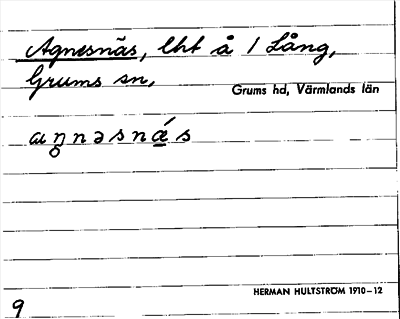 Agnesnäs, lht å 1 Lång,
Grums sn,
Grums hd, Värmlands län
aŋ̥nəsnǽs
HERMAN HULTSTRÖM 1910–12
9